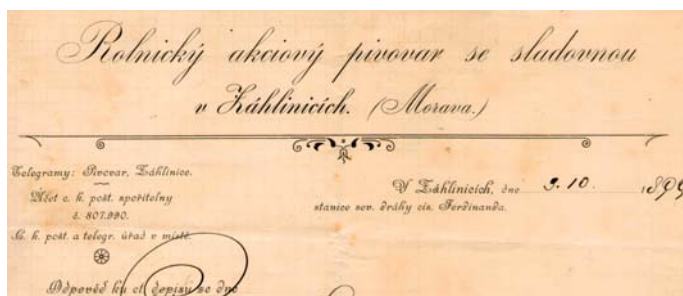 Rolnický akciový pivovar se sladovnou
v Záhlinicích. (Morava.)
Telegramy: Pivovar, Záhlinice.
Účet c. k. pošt. spořitelny
č. 807.990.
C. k. pošt. a telegr. úřad v místě.
V Záhlinicích, dne 9. 10. 189
stanice sev. dráhy cís. Ferdinanda.
Odpověď ku ct. depisu se dne